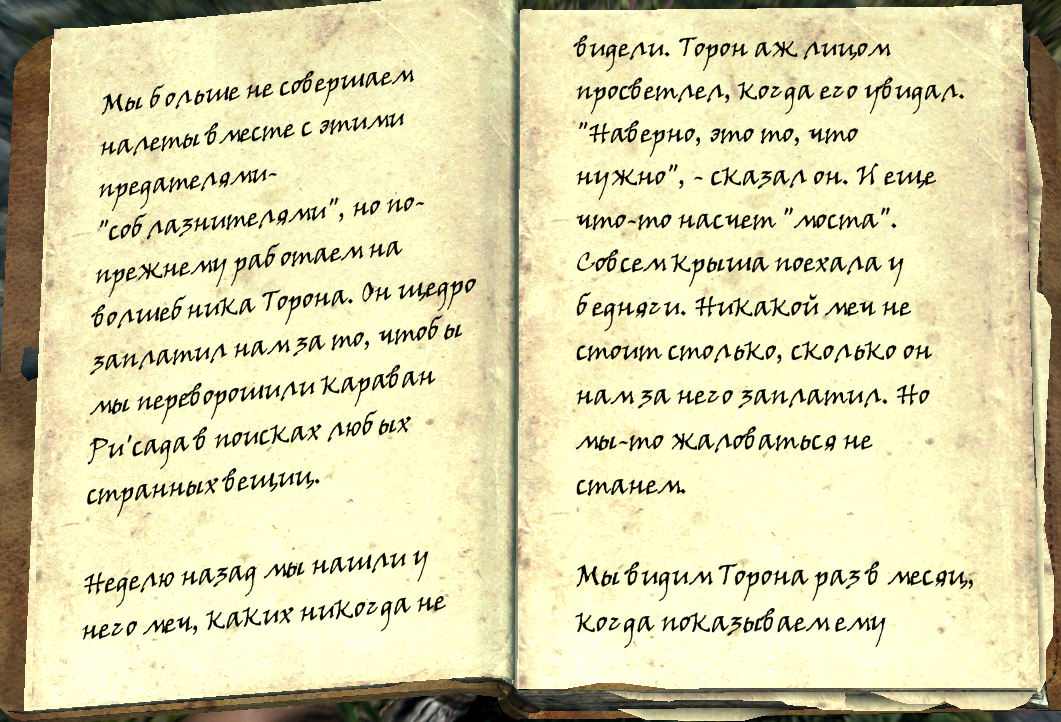 Мы больше не совершаем
налеты вместе с этими
предателями-
"соблазнителями", но по-
прежнему работаем на
волшебника Торона. Он щедро
заплатил нам за то, чтобы
мы переворошили караван
Ри'сада в поисках любых
странных вещиц.
Неделю назад мы нашли у
него меч, каких никогда не
видели. Торон аж лицом
просветлел, когда его увидал.
"Наверно, это то, что
нужно", - сказал он. И еще
что-то насчет "моста".
Совсем крыша поехала у
бедняги. Никакой меч не
стоит столько, сколько он
нам за него заплатил. Но
мы-то жаловаться не
станем.
Мы видим Торона раз в месяц,
когда показываем ему